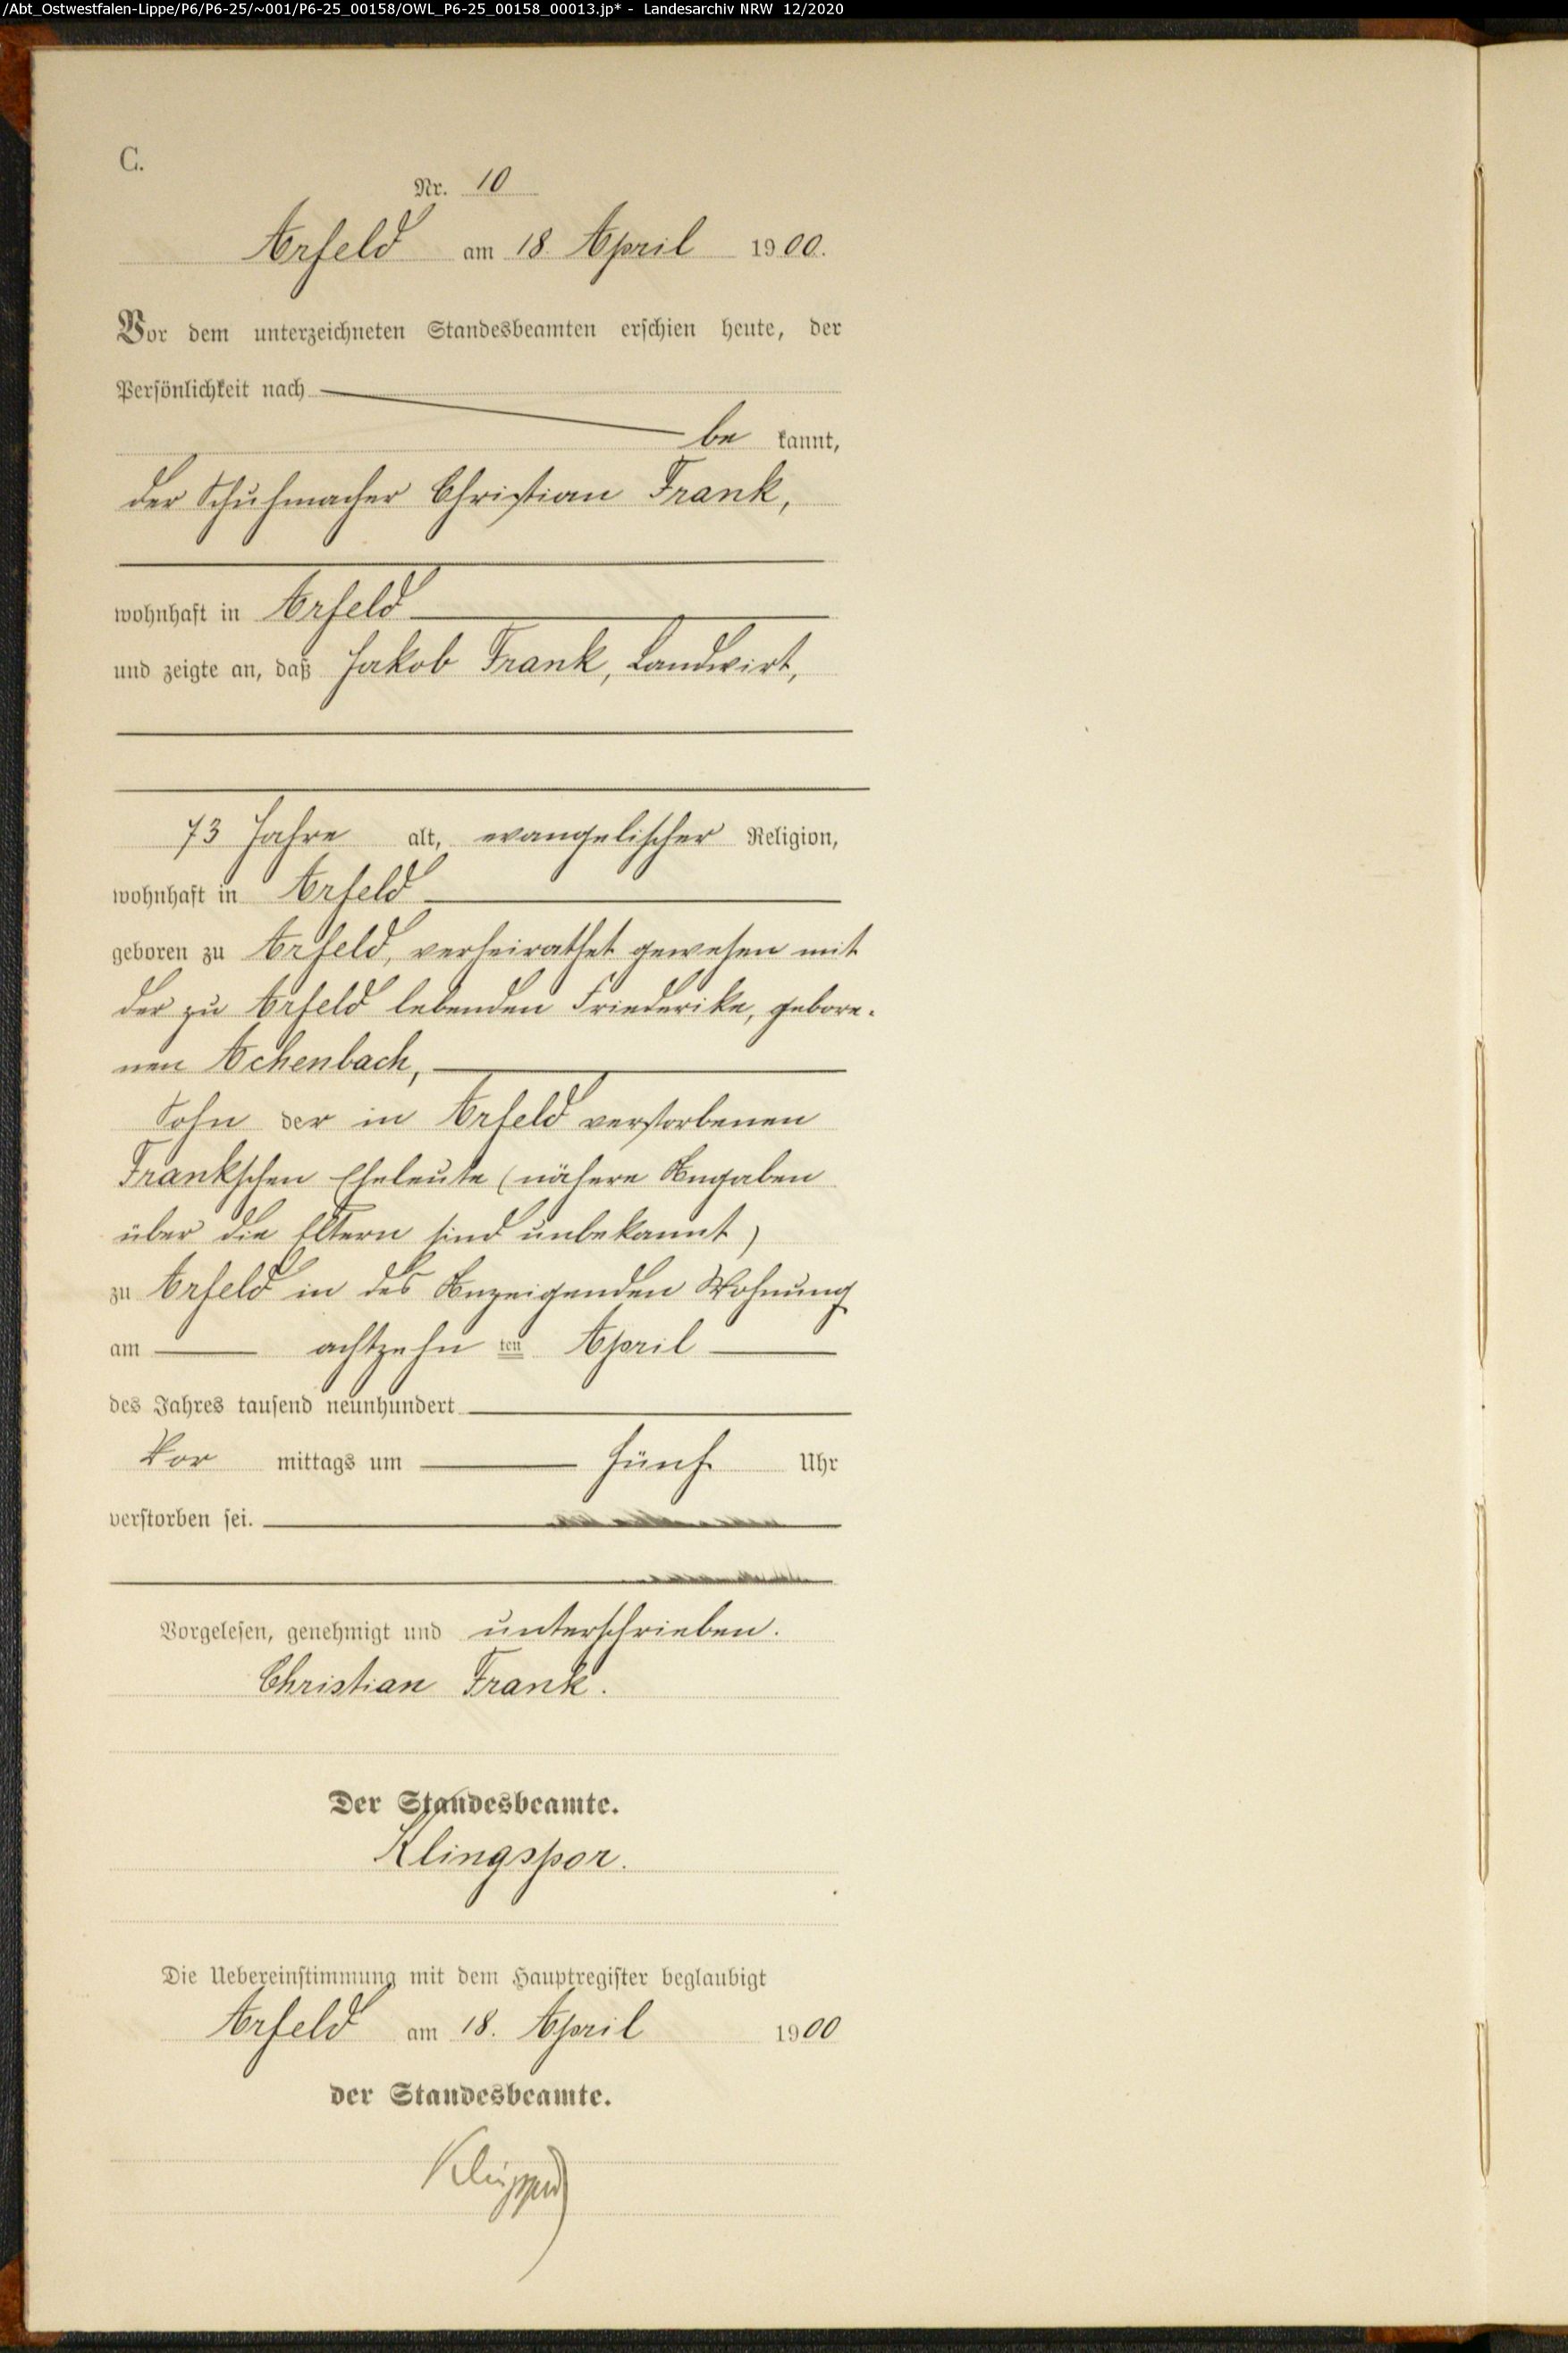 /Abt_Ostwestfalen-Lippe/P6/P6-25/~001/P6-25_00158/OWL_P6-25_00158_00013.jp* - Landesarchiv NRW 12/2020
C.
Nr. 10
Arfeld am 18. April 1900.
Vor dem unterzeichneten Standesbeamten erschien heute, der
Persönlichkeit nach
be kannt,
der Schuhmacher Christian Frank,
wohnhaft in Arfeld
und zeigte an, daß Jakob Frank, Landwirt,
73 Jahre alt, evangelischer Religion,
wohnhaft in Arfeld
geboren zu Arfeld, verheirathet gewesen mit
der zu Arfeld lebenden Friederike, gebore-
nen Achenbach,
Sohn der in Arfeld verstorbenen
Frankschen Eheleute (nähere Angaben
über die Eltern sind unbekannt)
zu Arfeld in des Anzeigenden Wohnung
am achtzehn ten April
des Jahres tausend neunhundert
Vor mittags um fünf Uhr
verstorben sei.
Vorgelesen, genehmigt und unterschrieben.
Christian Frank.
Der Standesbeamte.
Klingspor.
Die Uebereinstimmung mit dem Hauptregister beglaubigt
Arfeld am 18. April 1900
der Standesbeamte.
Klingspor